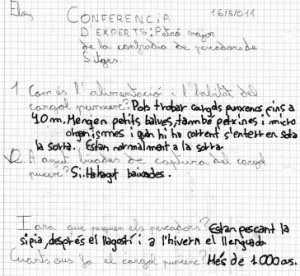 Eloy CONFERENCIA 16/5/011
D'EXPERTS: Patró major
de la confraria de pescadors de
Sitges.
1. Com és l'alimentació i l'hàbitat del
cargol punxenc? Pots trobar cargols punxencs fins a
40m. Mengen petits balves, també petxines i micro
organismes i quan hi ha corrent s'enterren sota
la sorra. Estan normalment a la sorra.
2. Hi ha baixades de captura del cargol
punxenc? Si. Hi ha agut baixades.
I ara que pesquen els pescadors? Estan pescant la
sipia, després el llagostí i a l'hivern el llenguado.
Quants ous fa el cargol punxenc? Més de 1000 ous.